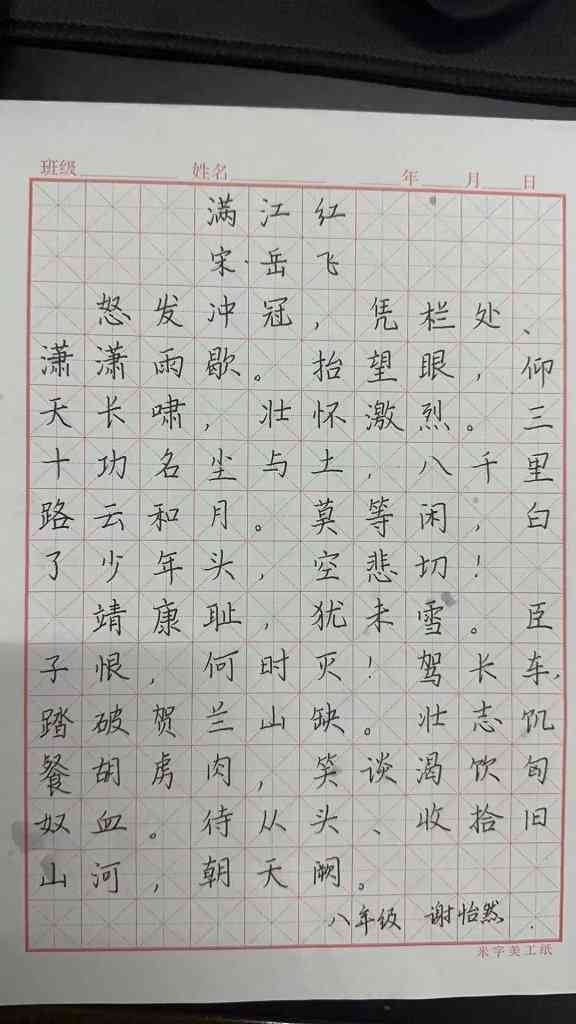 班级 姓名 年 月 日
满江红
宋·岳飞
怒发冲冠，凭栏处、
潇潇雨歇。抬望眼，仰
天长啸，壮怀激烈。三
十功名尘与土，八千里
路云和月。莫等闲，白
了少年头，空悲切！
靖康耻，犹未雪。臣
子恨，何时灭！驾长车，
踏破贺兰山缺。壮志饥
餐胡虏肉，笑谈渴饮匈
奴血。待从头、收拾旧
山河，朝天阙。
八年级 谢怡然
米字美工纸